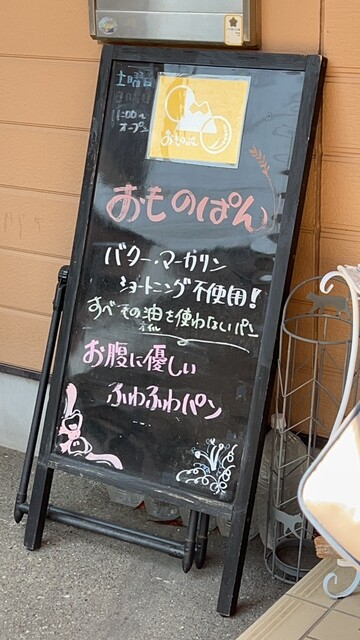 土曜日
11:00〜
オープン
おものぱん
バター・マーガリン
ショートニング不使用!
すべての油を使わないパン
お腹に優しい
ふわふわパン